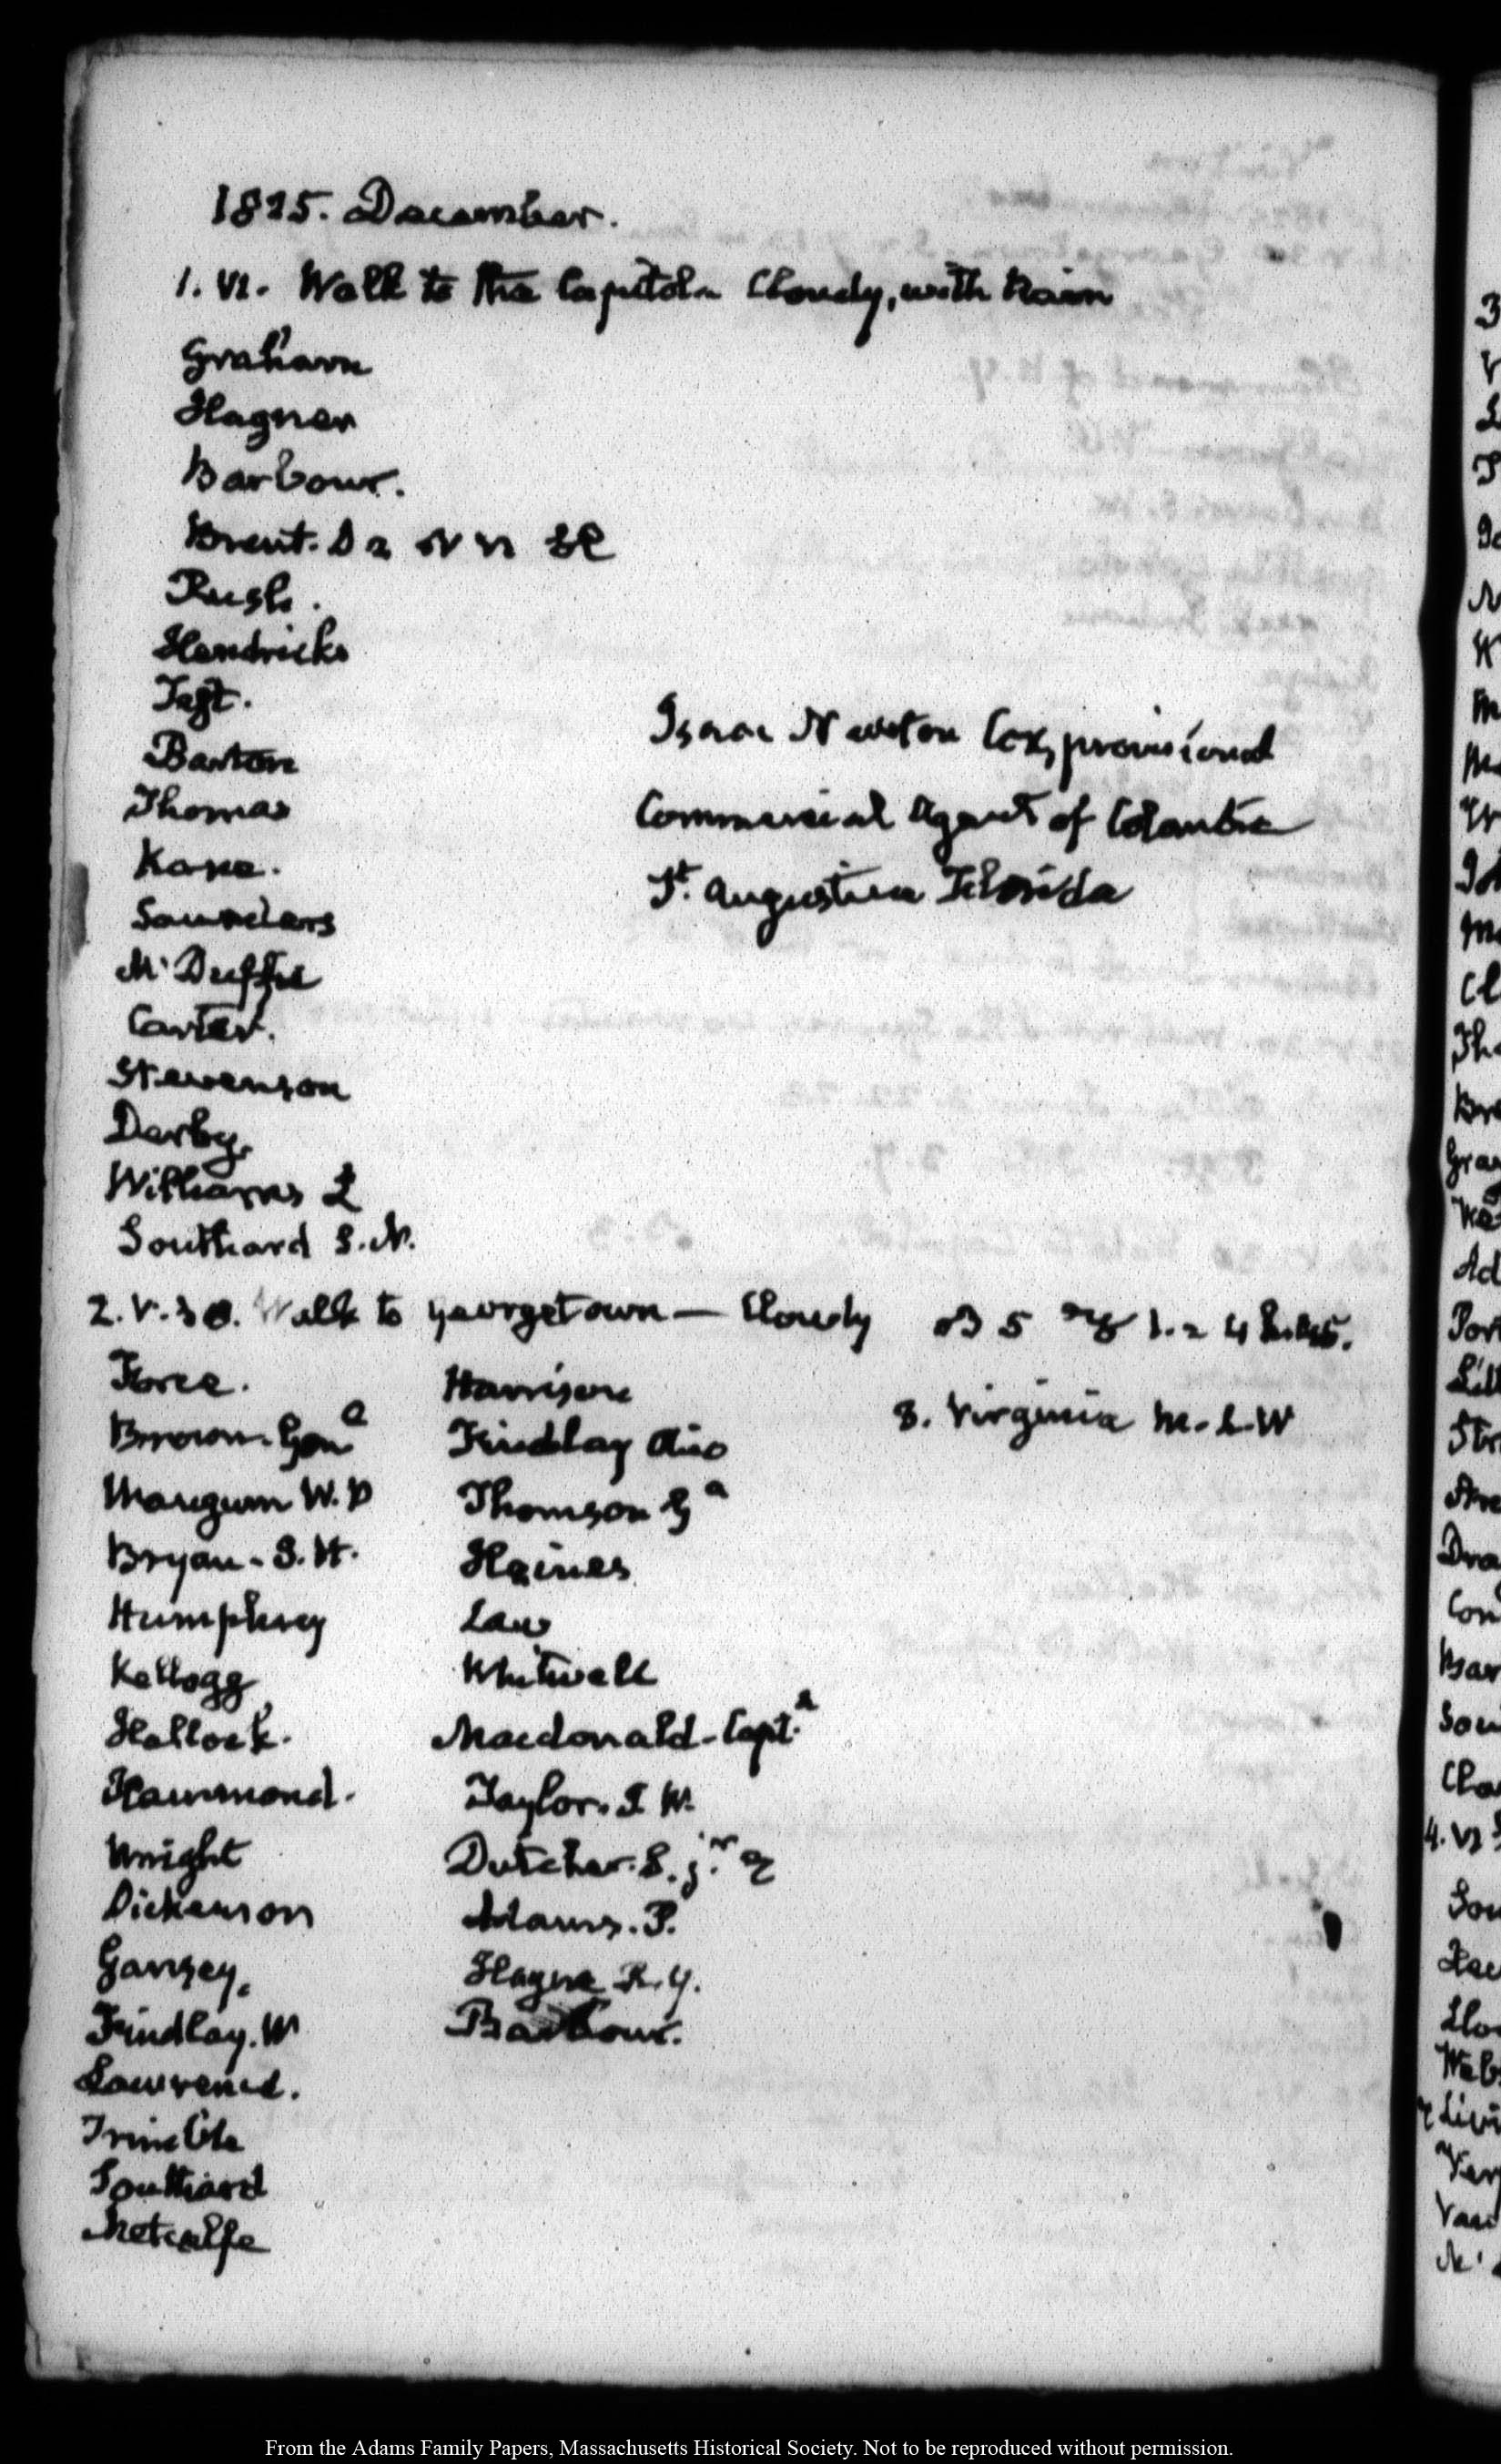 1825. December.
1. VI. Walk to the Capitol. Cloudy, with Rain
Graham
Hagner
Barbour.
Brent. D
Rush.
Hendricks
Taft.
Barton
Thomas
Kane.
Saunders
McDuffie
Carter.
Stevenson
Darby.
Williams L
Southard S. N.
Isaac Newton Cox, provisional
Commercial Agent of Colombia
St. Augustine Florida
2. V. 30. Walk to Georgetown — Cloudy
3. Virginia M. L. W
Force.
Brown. Genl
Mangum W. P
Bryan - J. H.
Humphrey
Kellogg
Hallock.
Hammond.
Wright
Dickerson
Garnsey.
Findlay. W
Lawrence.
Trimble
Southard
Metcalfe
Harrison
Findlay Ohio
Thomson Ga
Haines
Law
Whitwell
Macdonald - Capt.
Taylor. J W.
Dutcher. S. jr.
Adams. P.
Hayne R. Y.
Barbour.
From the Adams Family Papers, Massachusetts Historical Society. Not to be reproduced without permission.